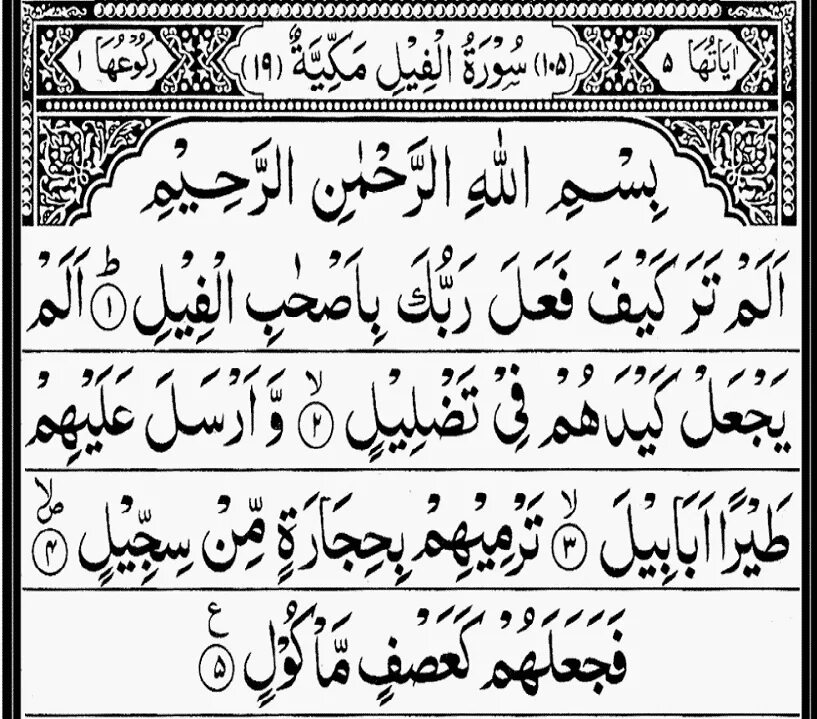 اٰيَاتُهَا ۵ (۱۰۵) سُوْرَةُ الْفِيْلِ مَكِّيَّةٌ (۱۹) رُكُوْعُهَا ۱
بِسْمِ اللهِ الرَّحْمٰنِ الرَّحِيْمِ
اَلَمْ تَرَ كَيْفَ فَعَلَ رَبُّكَ بِاَصْحٰبِ الْفِيْلِ ؕ ۱ اَلَمْ
يَجْعَلْ كَيْدَهُمْ فِيْ تَضْلِيْلٍ ۙ ۲ وَّ اَرْسَلَ عَلَيْهِمْ
طَيْرًا اَبَابِيْلَ ۙ ۳ تَرْمِيْهِمْ بِحِجَارَةٍ مِّنْ سِجِّيْلٍ ۙ ص ۴
فَجَعَلَهُمْ كَعَصْفٍ مَّاْكُوْلٍ ع ۵